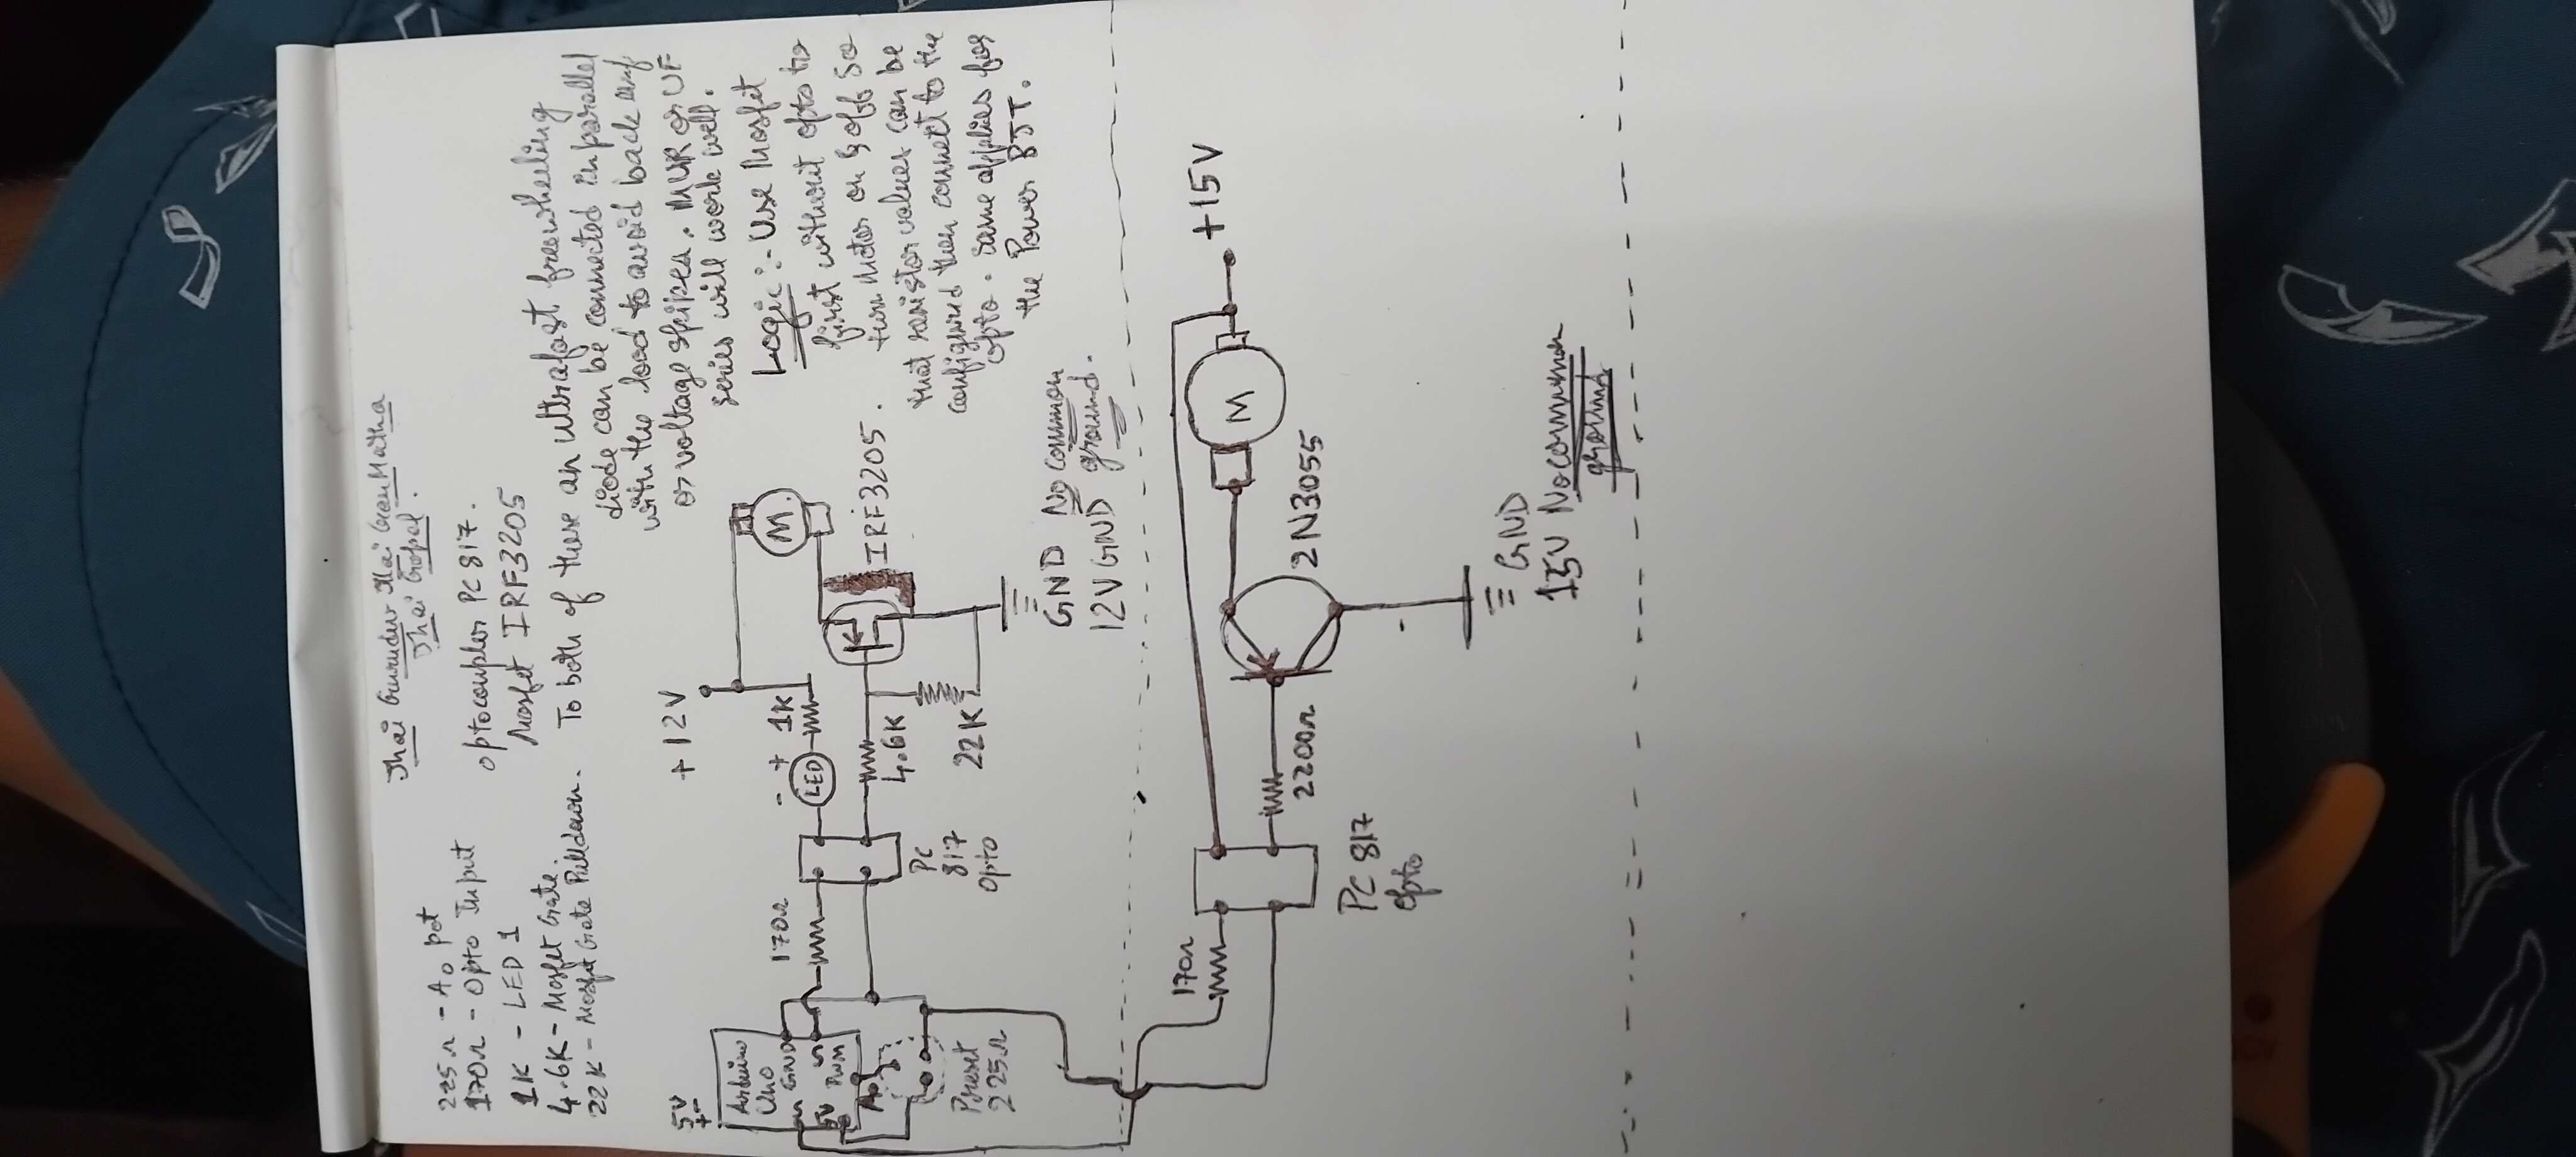 Jhai Gurudev Jhai GauMatha
Jhai Gopal.
225Ω - A0 pot
170Ω - Opto Input
1K - LED 1
4.6K - Mosfet Gate.
22K - Mosfet Gate Pulldown.
optocoupler PC 817.
Mosfet IRF3205
To both of these an ultrafast freewheeling
diode can be connected in parallel
with the load to avoid back emf
or voltage spikes. MUR or UF
series will work well.
Logic :- Use Mosfet
first without opto to
turn Motor on & off So
that resistor values can be
configured then connect to the
opto. Same applies for
the Power BJT.
5V
+-
Arduino
Uno
GND
5V
PWM
A0
Preset
225Ω
170Ω
PC
817
Opto
- +
LED
1K
+12V
M.
4.6K
22K
IRF3205.
GND No common
12V GND ground.
170Ω
PC 817
Opto
2200Ω
2N3055
M
+15V
-
GND
15V No common
ground